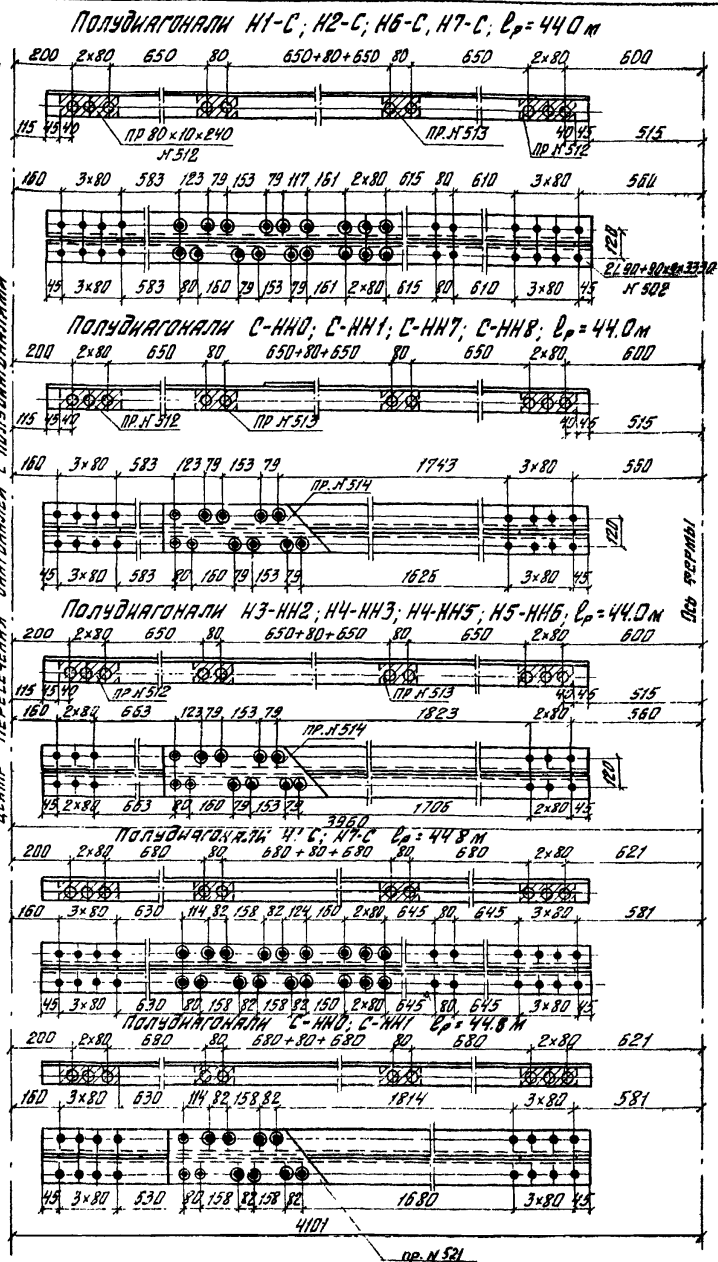 Полудиагонали Н1-С; Н2-С; Н6-С, Н7-С; ℓр=44.0 м
200 2×80 650 80 650+80+650 80 650 2×80 600
115 45 40 ПР 80×10×240 ПР. N 513 ПР N 512 40 45 515
N 512
160 3×80 583 123 79 153 79 117 161 2×80 615 80 610 3×80 560
120
2∟90+90×9×3330
45 3×80 583 80 160 79 153 79 161 2×80 615 80 610 3×80 45 N 502
Полудиагонали С-НН0; С-НН1; С-НН7; С-НН8; ℓр=44.0м
200 2×80 650 80 650+80+650 80 650 2×80 600
115 45 40 ПР. N 512 ПР. N 513 40 45 515
160 3×80 583 123 79 153 79 1743 3×80 560
ПР. N 514
120
45 3×80 583 80 160 79 153 79 1626 3×80 45
Полудиагонали Н3-НН2; Н4-НН3; Н4-НН5; Н5-НН6; ℓр=44.0м
200 2×80 650 80 650+80+650 80 650 2×80 600
115 45 40 ПР. N 512 ПР. N 513 40 45 515
160 2×80 663 123 79 153 79 1823 2×80 560
ПР. N 514
120
45 2×80 663 80 160 79 153 79 1706 2×80 45
3960
Полудиагонали С; Н7-С ℓр=44.8 м
200 2×80 680 80 680+80+680 80 680 2×80 621
160 3×80 630 114 82 158 82 124 160 2×80 645 80 645 3×80 581
45 3×80 630 80 158 82 158 82 150 2×80 645 80 645 3×80 45
Полудиагонали С-НН0; С-НН1 ℓр=44.8 м
200 2×80 680 80 680+80+680 80 680 2×80 621
160 3×80 630 114 82 158 82 1814 3×80 581
45 3×80 630 80 158 82 158 82 1680 3×80 45
4101
ПР. N 521
Ось фермы
Центр пересечения диагоналей с полудиагоналями